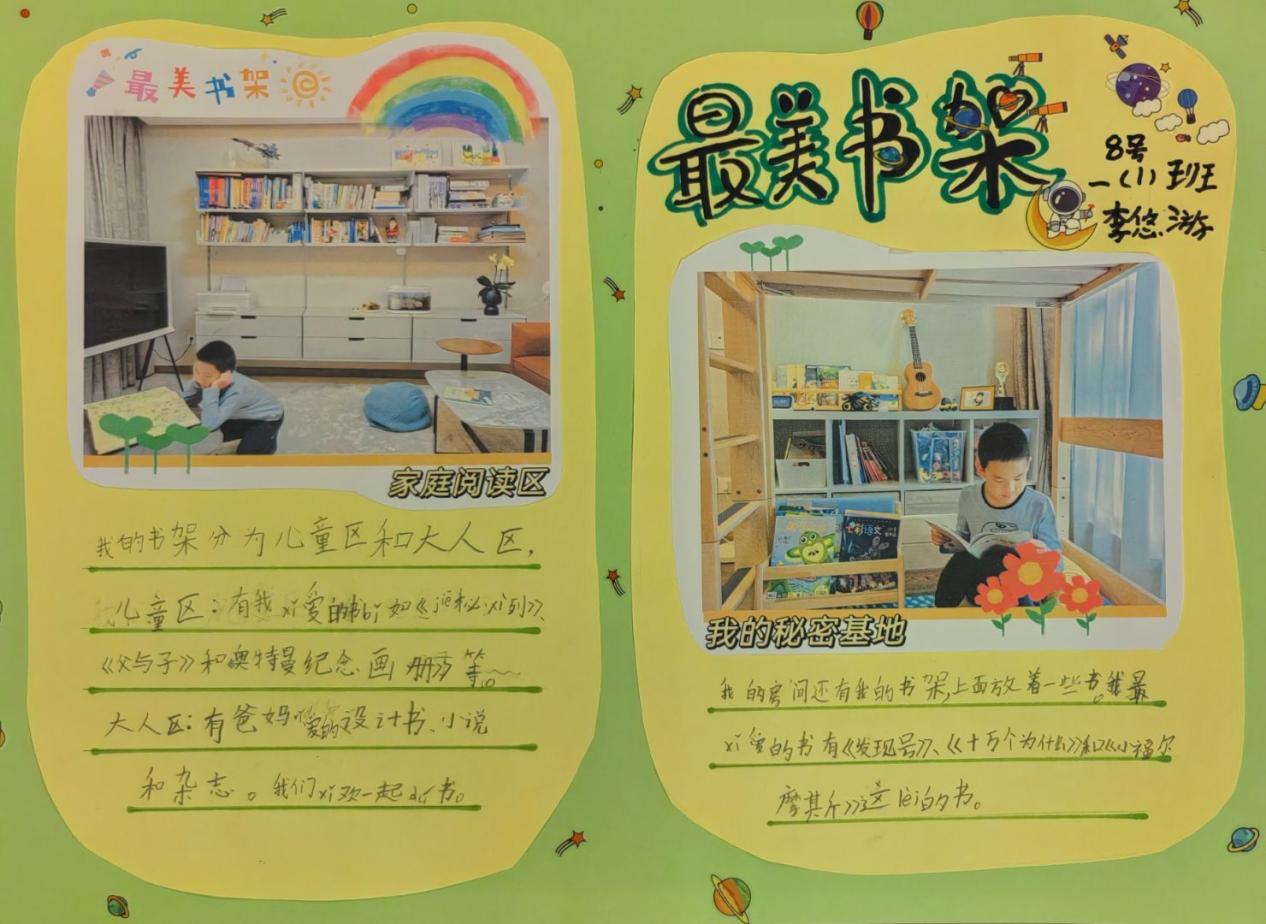 最美书架
家庭阅读区
我的书架分为儿童区和大人区，
儿童区：有我xǐ爱的书bǐ如《jiē秘xì列》、
《父与子》和奥特曼纪念画册等。
大人区：有爸妈xǐ爱的设计书、小说
和杂志。我们xǐ欢一起dú书。
最美书架
8号
一（1）班
李悠游
七彩语文
我的秘密基地
我的房间还有我的书架，上面放着一些书。我最
xǐ爱的书有《发现号》、《十万个为什么》和《小福尔
摩其斤》这lèi的书。